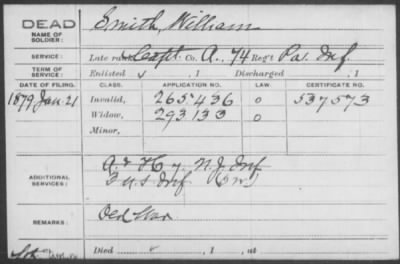 DEAD
NAME OF SOLDIER:
Smith, William
SERVICE:
Late rank Capt. Co. A., 74 Reg't Pa. Inf
TERM OF SERVICE:
Enlisted , 1 Discharged , 1
DATE OF FILING. CLASS. APPLICATION NO. LAW CERTIFICATE NO.
1879 Jan 21 Invalid, 265436 o 537573
Widow, 293133 o
Minor,
ADDITIONAL SERVICES:
A & H N.J. Inf
3 U.S. Inf
REMARKS:
Old War
Died , 1 , at